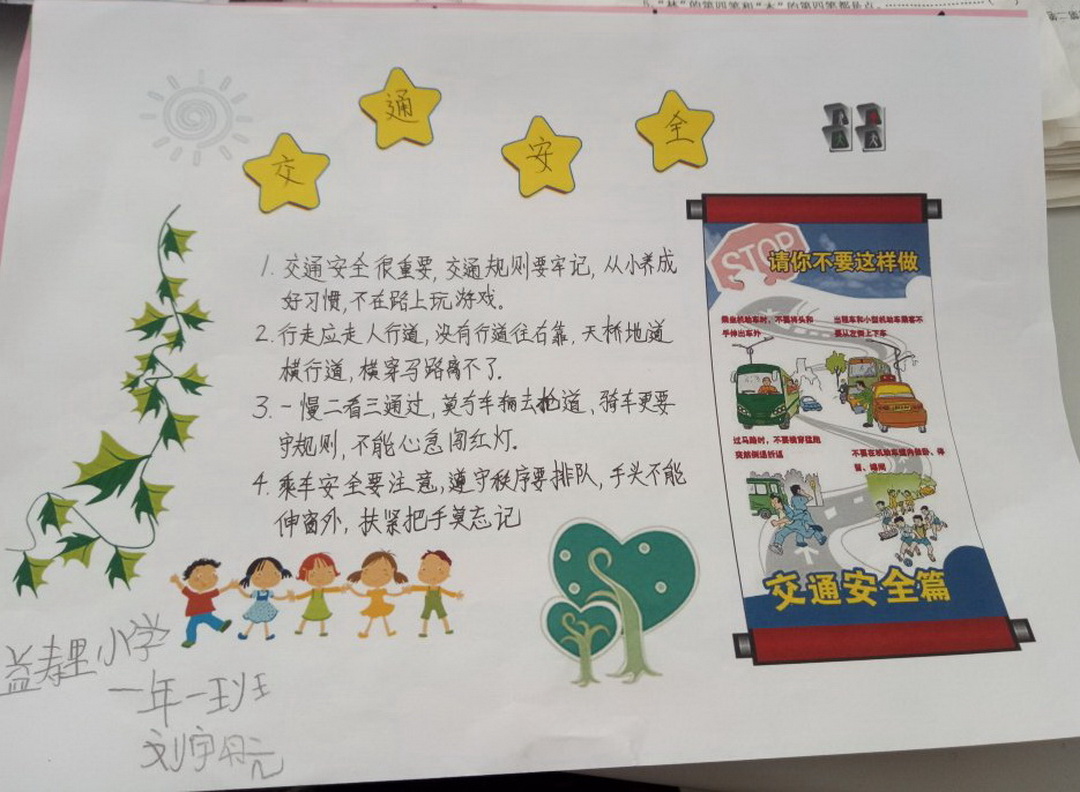 交通安全
1. 交通安全很重要, 交通规则要牢记, 从小养成
好习惯, 不在路上玩游戏。
2. 行走应走人行道, 没有行道往右靠, 天桥地道
横行道, 横穿马路离不了.
3. 一慢二看三通过, 莫与车辆去抢道, 骑车更要
守规则, 不能心急闯红灯.
4. 乘车安全要注意, 遵守秩序要排队, 手头不能
伸窗外, 扶紧把手莫忘记
STOP
请你不要这样做
乘坐机动车时，不要将头和
手伸出车外
出租车和小型机动车乘客不
要从左侧上下车
过马路时，不要横穿猛跑
突然倒退折返
不要在机动车道内
交通安全篇
益寿里小学
一年一班
刘宇